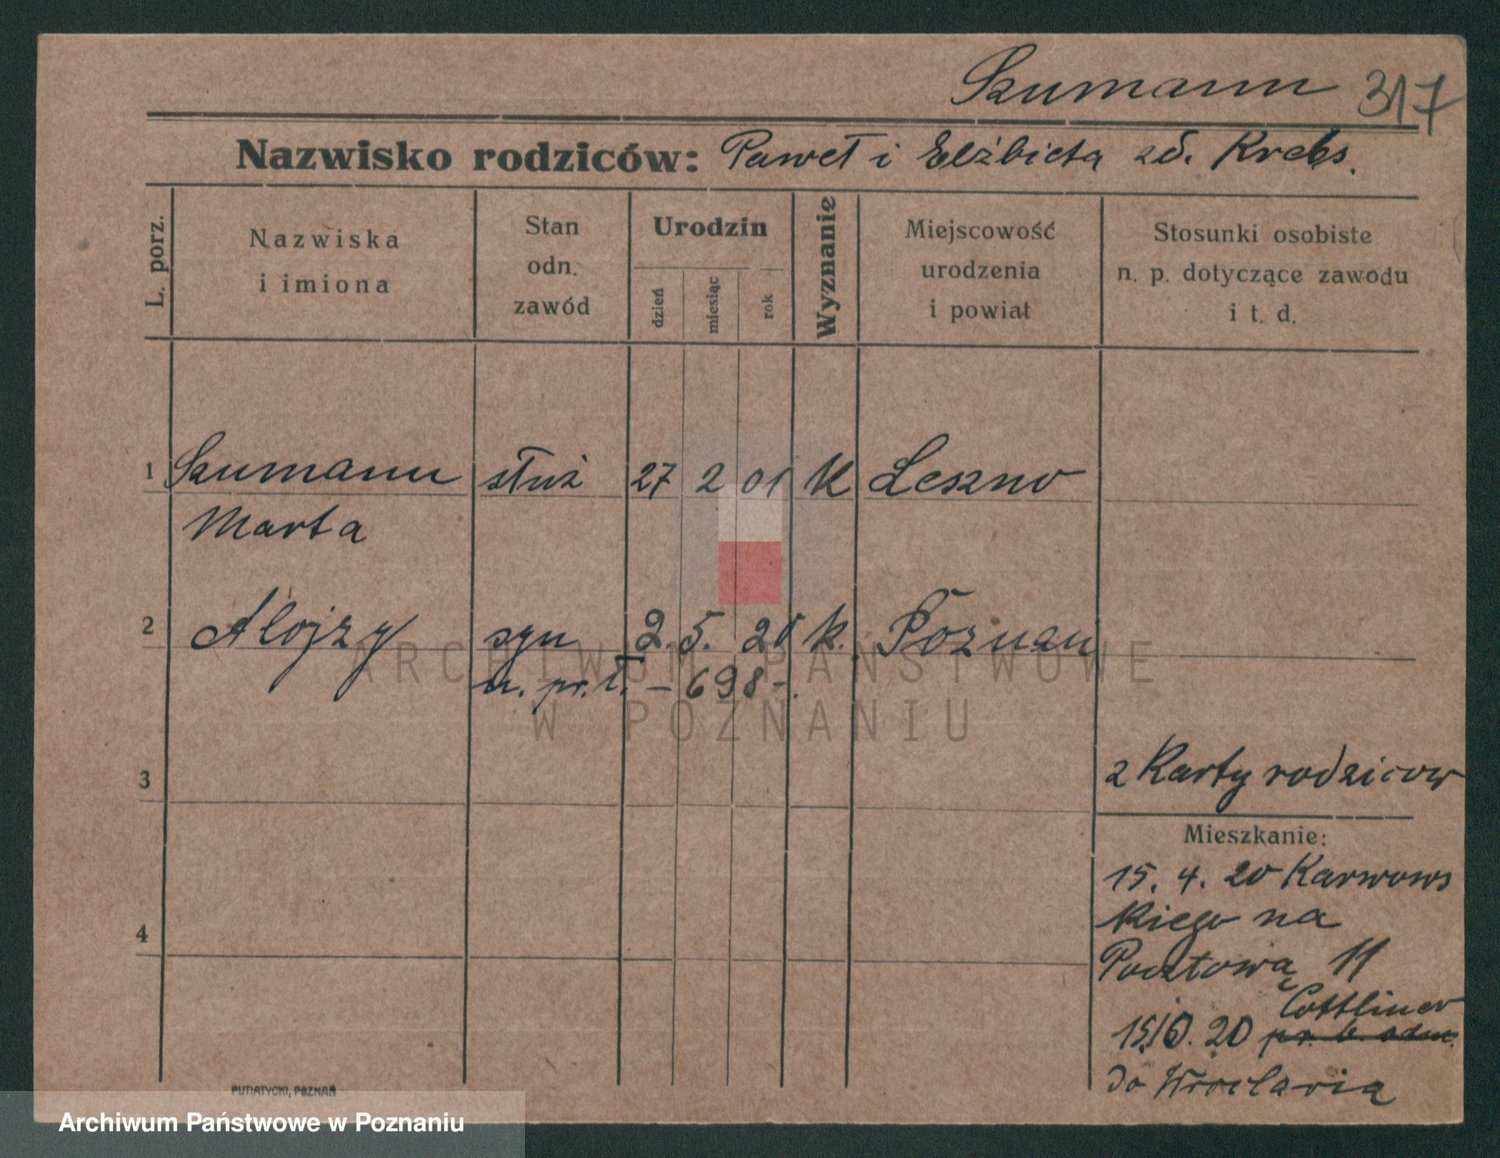 Szumann 317
Nazwisko rodziców: Paweł i Elżbieta zd. Krebs.
L. porz.
Nazwiska
i imiona
Stan
odn.
zawód
Urodzin
dzień
miesiąc
rok
Wyznanie
Miejscowość
urodzenia
i powiat
Stosunki osobiste
n. p. dotyczące zawodu
i t. d.
1 Szumann służ 27 2 01 K Leszno
Marta
2 Alojzy syn 2. 5. 20 k. Poznan
n. pr. I. - 698 -.
ARCHIWUM PAŃSTWOWE
W POZNANIU
3
z Karty rodzicow
Mieszkanie:
15. 4. 20 Karwows
kiego na
4
Pocztową 11
Cottliner
15/6. 20
do Wroclawia
PUTIATYCKI, POZNAŃ
Archiwum Państwowe w Poznaniu